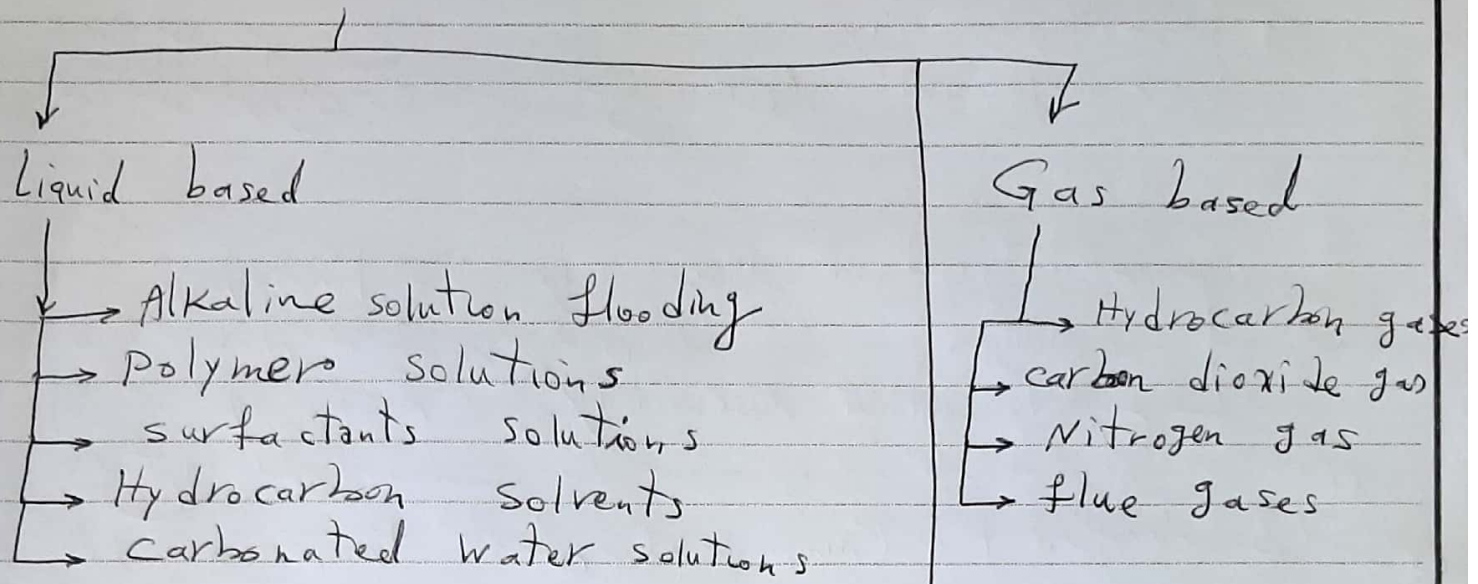 Liquid based
Alkaline solution flooding
Polymer solutions
surfactants solutions
Hydrocarbon solvents
Carbonated water solutions
Gas based
Hydrocarbon gases
carbon dioxide gas
Nitrogen gas
flue gases